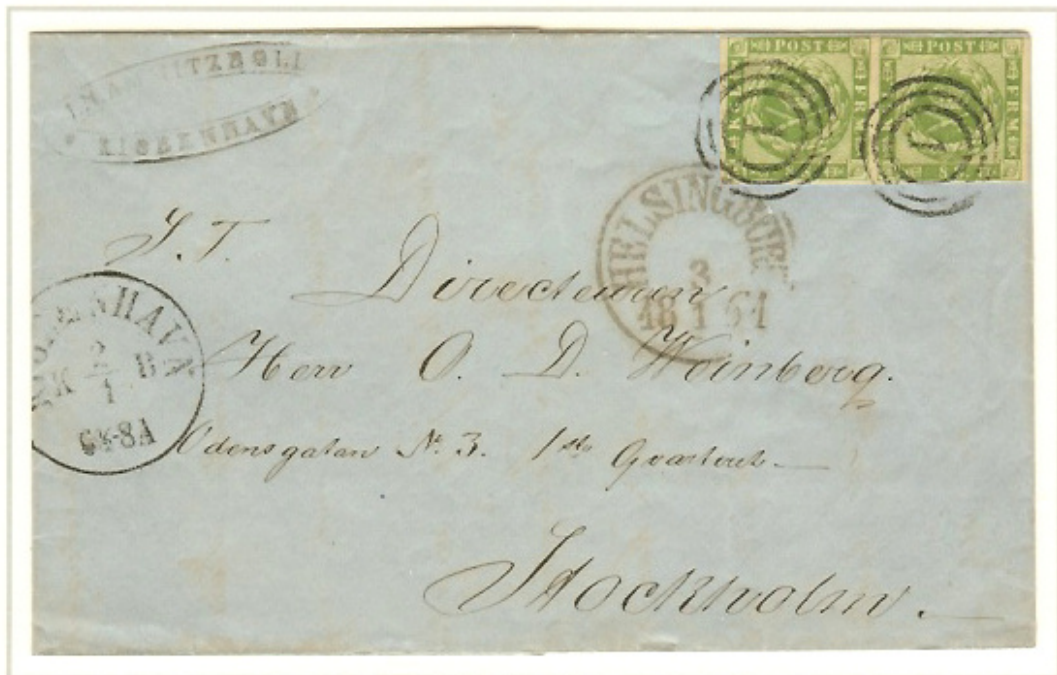 KIØBENHAVN
POST
POST
FRM
FRM
HELSINGBORG
3
18 1 61
S. T.
Directeuren
KIØBENHAVN
2
K B
1
6½-8A
Herr O. D. Weinberg.
Odensgatan Nr. 3. 1sta
Stockholm.